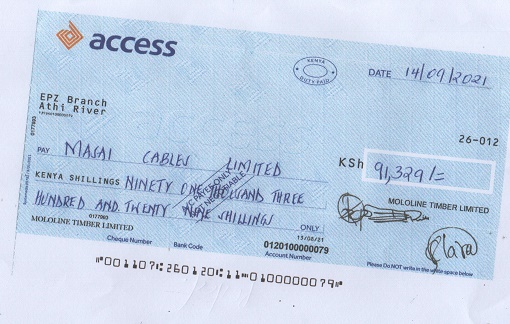 access
KENYA
DUTY PAID
DATE 14/09/2021
EPZ Branch
Athi River
26-012
PAY MASAI CABLES LIMITED
KSh 91,329/=
KENYA SHILLINGS NINETY ONE THOUSAND THREE
HUNDRED AND TWENTY NINE SHILLINGS ONLY
A/C PAYEE ONLY
NOT NEGOTIABLE
MOLOLINE TIMBER LIMITED
0177003
MOLOLINE TIMBER LIMITED
13/08/21
Cheque Number
Bank Code
0120100000079
Account Number
Please Do NOT write in the white space below